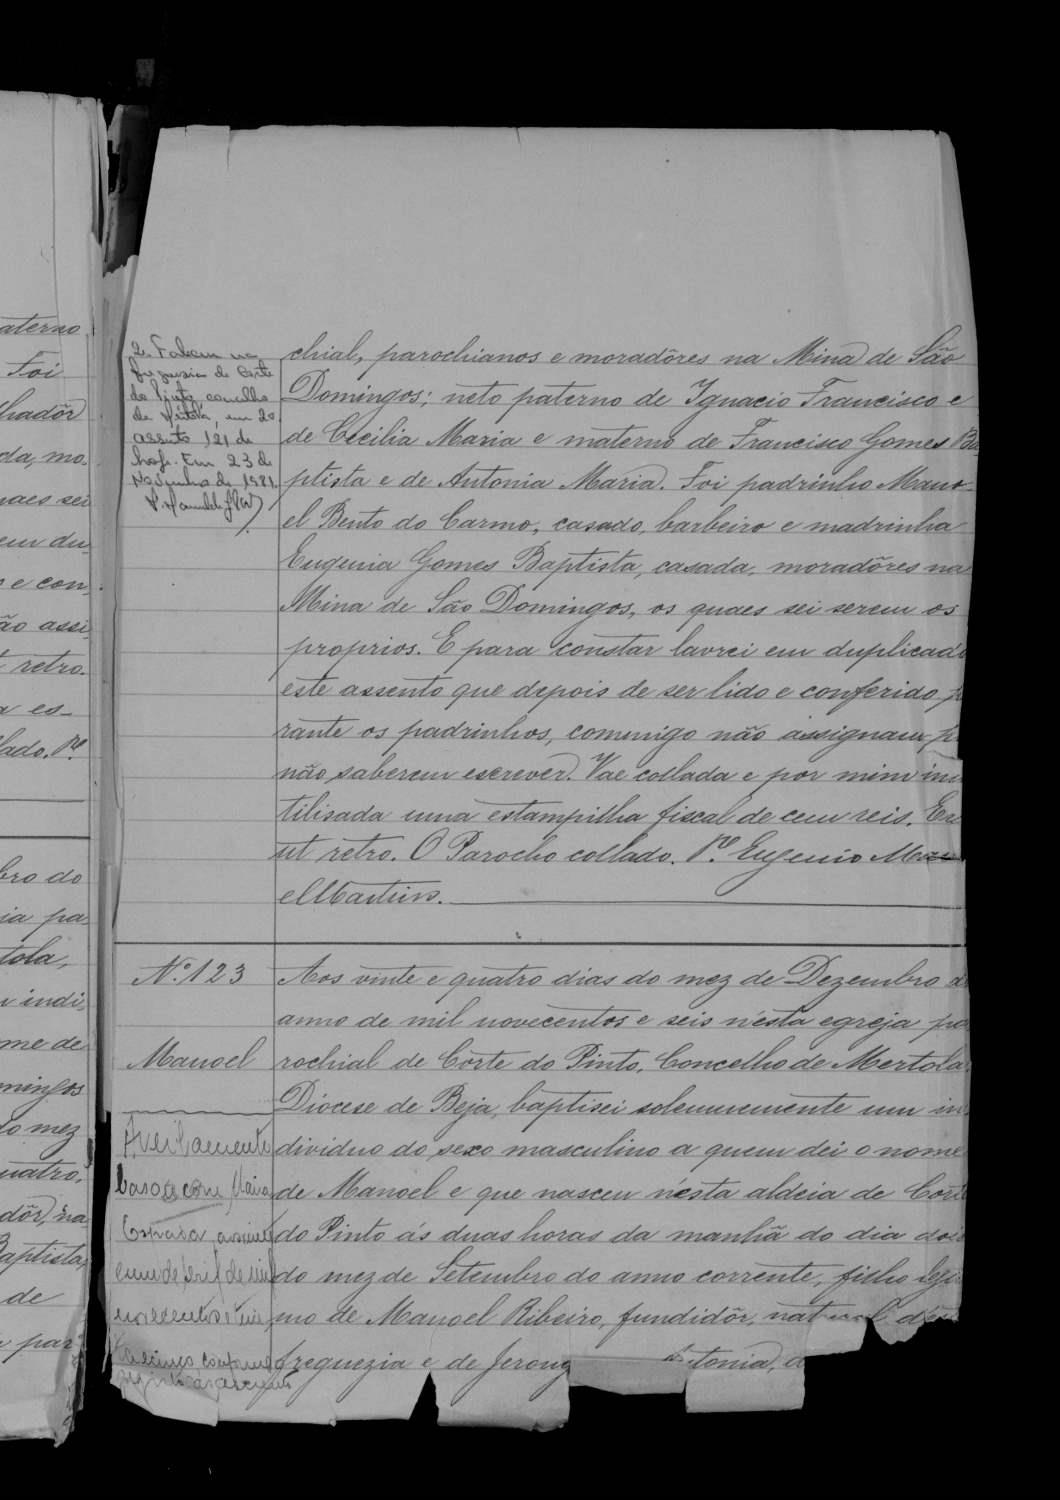 aterno
Foi
lhadôr
da, mo-
naes sei
em du-
e con-
ão assi-
retro.
a es-
lado. Pe.
bro do
ia pa-
tola,
indi-
me de
mingos
do mez
uatro,
dôr, na-
Baptista,
de
par
2. Faleceu na
freguesia de Corte
do Pinto, concelho
de Mértola, em 20.
assento 121 de
hoje. Em 23 de
de 1981.
chial, parochianos e moradôres na Mina de São
Domingos; neto paterno de Ignacio Francisco e
de Cecilia Maria e materno de Francisco Gomes Ba-
ptista e de Antonia Maria. Foi padrinho Mano-
el Bento do Carmo, casado, barbeiro e madrinha
Eugenia Gomes Baptista, casada, moradôres na
Mina de São Domingos, os quaes sei serem os
proprios. E para constar lavrei em duplicado
este assento que depois de ser lido e conferido pe-
rante os padrinhos, commigo não assignam, p
não saberem escrever. Vae collada e por mim inu-
tilisada uma estampilha fiscal de cem reis. Era
ut retro. O Parocho collado. Pe. Eugenio Mano-
el Martins.
N.º 123
Manoel
Averbamento
Casou com Maria
Aos vinte e quatro dias do mez de Dezembro do
anno de mil novecentos e seis n'esta egreja pa-
rochial de Côrte do Pinto, Concelho de Mertola,
Diocese de Beja, baptisei solemnemente um in-
dividuo do sexo masculino a quem dei o nome
de Manoel e que nasceu n'esta aldeia de Corte
do Pinto ás duas horas da manhã do dia dois
do mez de Setembro do anno corrente, filho legi-
mo de Manoel Ribeiro, fundidôr, natural d'es
freguezia e de Jerony tonia, d